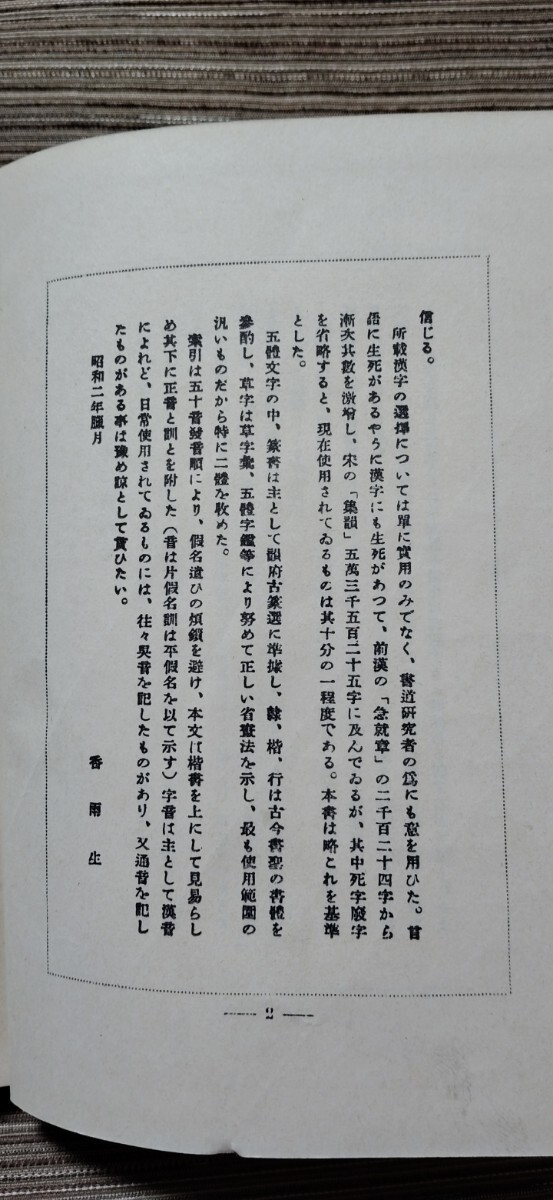 信じる。
所載漢字の選擇については單に實用のみでなく、書道研究者の爲にも意を用ひた。言
語に生死があるやうに漢字にも生死があつて、前漢の「急就章」の二千百二十四字から
漸次其數を激增し、宋の「集韻」五萬三千五百二十五字に及んでゐるが、其中死字廢字
を省略すると、現在使用されてゐるものは其十分の一程度である。本書は略これを基準
とした。
五體文字の中、篆書は主として韻府古篆選に準據し、隸、楷、行は古今書聖の書體を
參酌し、草字は草字彙、五體字鑑等により努めて正しい省畫法を示し、最も使用範圍の
汎いものだから特に二體を收めた。
索引は五十音發音順により、假名遣ひの煩鎖を避け、本文は楷書を上にして見易らし
め其下に正音と訓とを附した（音は片假名訓は平假名を以て示す）字音は主として漢音
によれど、日常使用されてゐるものには、往々吳音を記したものがあり、又通音を記し
たものがある事は豫め諒として貰ひたい。
昭和二年臘月
香雨生
2